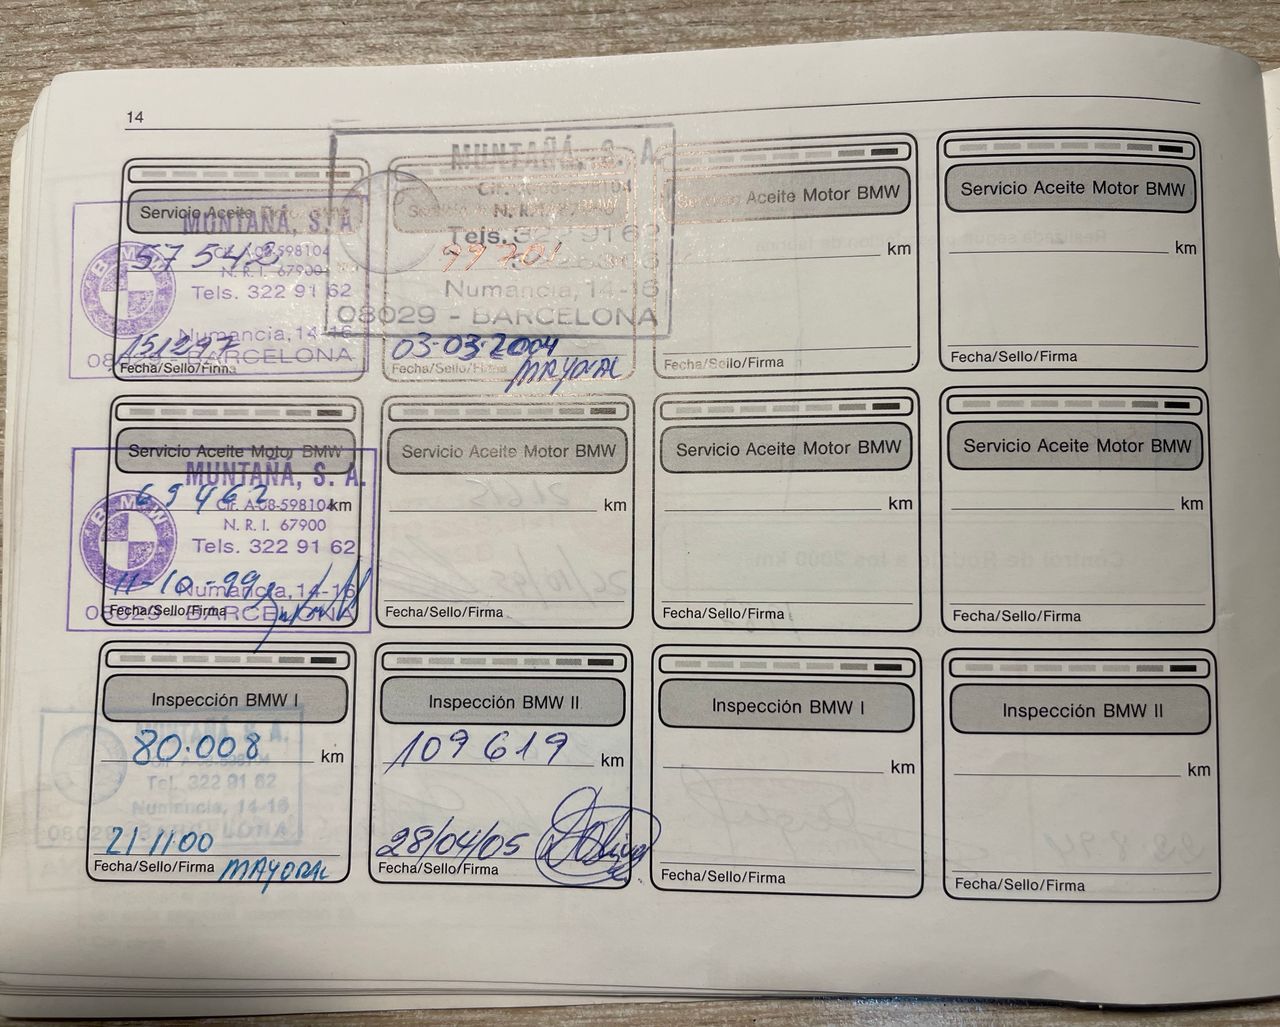 14
Servicio Aceite Motor BMW
57 543
MUNTAÑÁ, S. A
Cif. A-08-598104
N. R. I. 67900
Tels. 322 91 62
Numancia, 14-16
08029 - BARCELONA
BMW
151297
Fecha/Sello/Firma
MUNTAÑÁ, S. A.
Cif. A-08-598104
99701
Numancia, 14-16
08029 - BARCELONA
03-03-2004
Fecha/Sello/Firma
MAYORAL
Servicio Aceite Motor BMW
km
Fecha/Sello/Firma
Servicio Aceite Motor BMW
km
Fecha/Sello/Firma
Servicio Aceite Motor BMW
MUNTAÑÁ, S. A.
69462
km
Cif. A-08-598104
N. R. I. 67900
Tels. 322 91 62
BMW
11-10-99
Numancia, 14-16
Fecha/Sello/Firma
08029 - BARCELONA
Servicio Aceite Motor BMW
km
Fecha/Sello/Firma
Servicio Aceite Motor BMW
km
Fecha/Sello/Firma
Servicio Aceite Motor BMW
km
Fecha/Sello/Firma
Inspección BMW I
80.008
km
MUNTAÑÁ, S. A.
Tel. 322 91 62
Numancia, 14-16
08029 BARCELONA
21-11-00
Fecha/Sello/Firma
MAYORAL
Inspección BMW II
109 619
km
28/04/05
Fecha/Sello/Firma
Inspección BMW I
km
Fecha/Sello/Firma
Inspección BMW II
km
Fecha/Sello/Firma